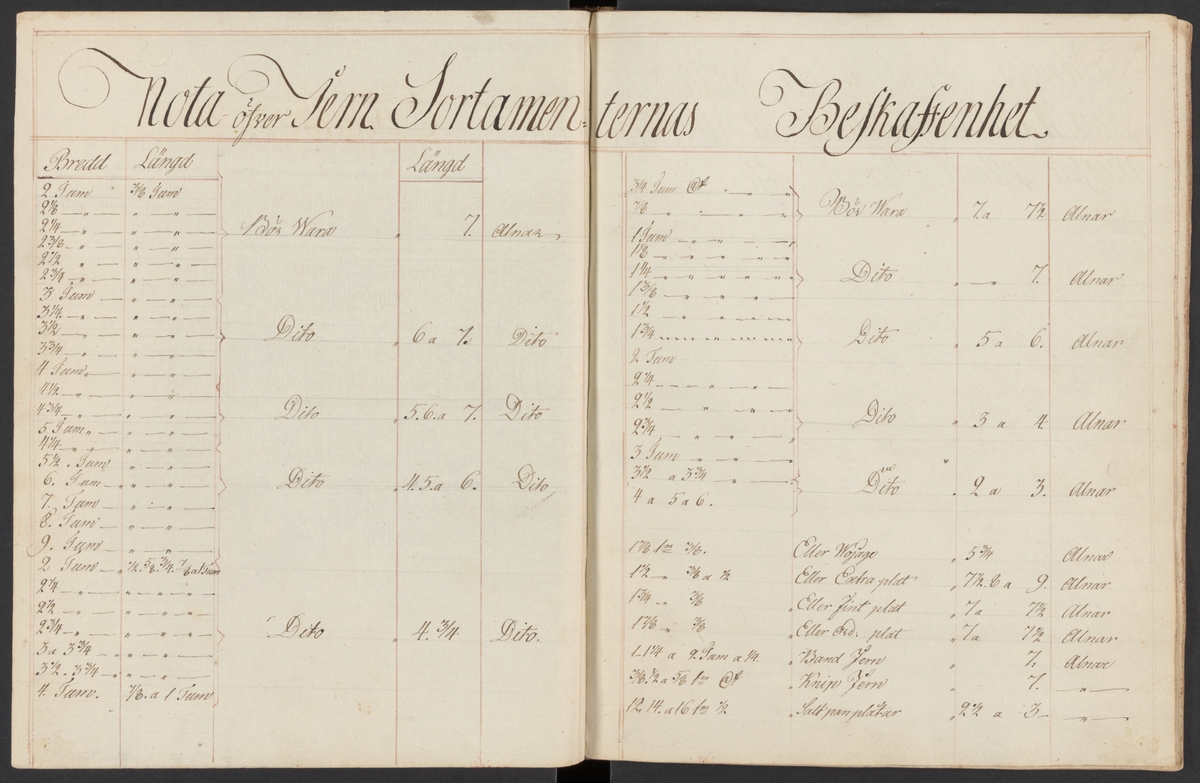 Nota öfver Jern Sortamen=ternas Beskaffenhet.
Bredd Längd Längd
2 Tum 3/8 Tum
2 1/8 — „ — „ — „
2 1/4 — „ — „ — „ Bör Wara „ 7. Alnar
2 3/8 — „ — „ — „
2 1/2 — „ — „ — „
2 3/4 — „ — „ — „
3 Tum — „ — „
3 1/4 — „ — „ — „
3 1/2 — „ — „ — „ Dito „ 6 a 7. Dito
3 3/4 — „ — „ — „
4 Tum. „ — „
4 1/2 — „ — „ — „
4 3/4 — „ — „ — „ Dito „ 5.6.a 7. Dito
5 Tum „ — „ — „
4 1/4 — „ — „ — „
5 1/2 . Tum „ — „
6. Tum — „ — „ — „ Dito „ 4.5.a 6. Dito
7. Tum — „ — „
8. Tum — „ — „
9. Tum — „ — „
2 Tum — „ 1/2. 5/8. 3/4. 7/8 a 1 Tum
2 1/4 — „ — „ — „ — „
2 1/2 — „ — „ — „ — „
2 3/4 — „ — „ — „ — „ Dito „ 4. 3/4 Dito.
3 a 3 3/4 — „ — „ — „
3 1/2. 3 3/4 — „ — „ — „
4. Tum. 7/8. a 1 Tum
3/4 Tum — „ — „
7/8 — „ — „ Bör Wara „ 7 a 7 1/2 Alnar
1 Tum — „ — „ — „
1 1/8 — „ — „ — „
1 1/4 — „ — „ — „ Dito „ — „ 7. Alnar
1 3/8 — „ — „ — „
1 1/2 — „ — „ — „
1 3/4 — „ — „ — „ Dito „ 5 a 6. Alnar
2 Tum
2 1/4 — „ — „ — „
2 1/2 — „ — „ — „ Dito „ 3 a 4. Alnar
2 3/4 — „ — „ — „
3 Tum — „ — „
3 1/2 a 3 3/4 — „ — „ Dito „ 2 a 3. Alnar
4 a 5 a 6.
3/8. Eller Wojage „ 5 3/4 Alnar
1 1/2 — „ 3/8 a 1/2 Eller Extra plat „ 7 1/2. 8 a 9. Alnar
1 3/4 — „ 3/8 „ Eller Fint plat „ 7 a 7 1/2 Alnar
1 7/8 — „ 3/8 „ Eller Ord. plat „ 7 a 7 1/2 Alnar
1. 1 1/4 a 2 Tum a 1/4. „ Band Jern „ 7. Alnar
3/8. 1/2 a 5/8 „ Knip Jern „ 7. — „ —
12. 14. a 16 1/2 „ Saltpanplåtar „ 2 1/2 a 3 — „ —